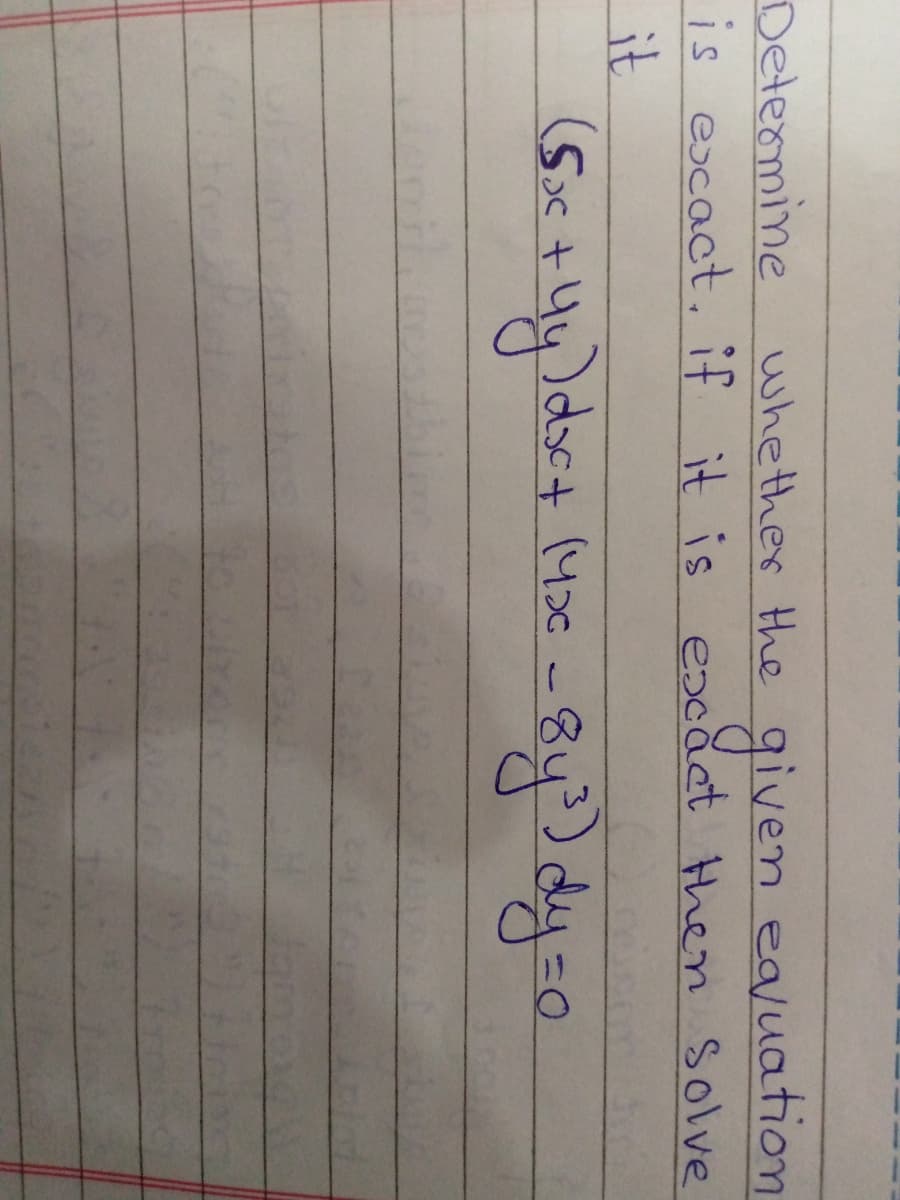 Determine whether the given equation
is exact. if it is exact then solve
it
(5x + 4y) dx + (4x - 8y³) dy = 0